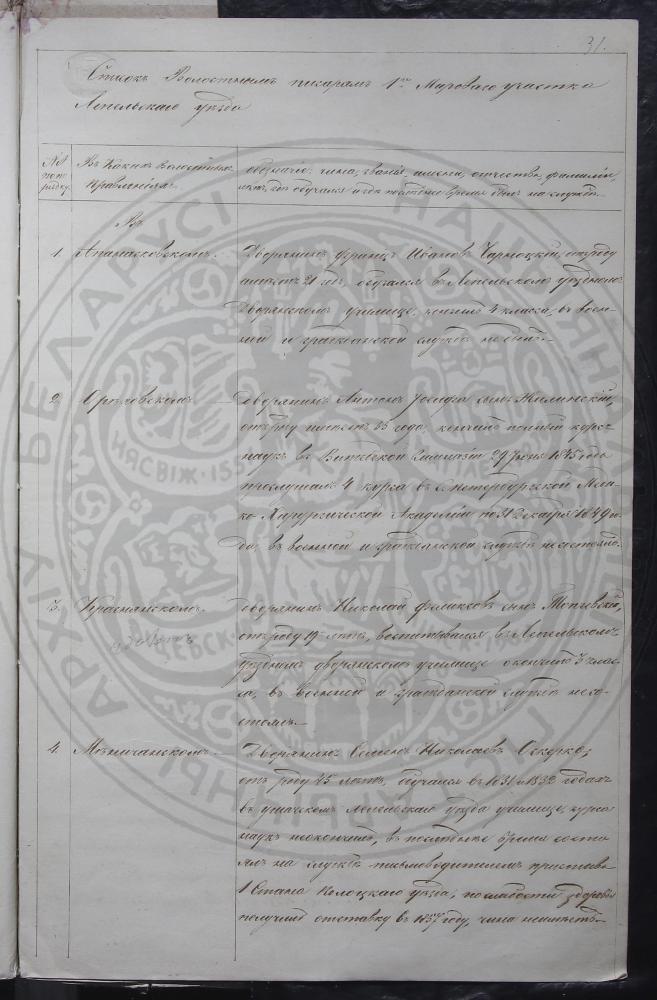 31.
Списокъ Волостнымъ писарямъ 1го Мироваго участка
Лепельскаго уѣзда
№№ по порядку
Въ какихъ Волостныхъ Правленіяхъ.
чина, званія, имени, отчества, фамиліи,
лѣтъ, гдѣ обучался и гдѣ послѣднее время былъ на службѣ.
Въ
1. Апанасковскомъ.
Дворянинъ Францъ Ивановъ Чарноцкій, отъ роду
имѣетъ 21 годъ, обучался въ Лепельскомъ уѣздномъ
Дворянскомъ училищѣ, кончилъ 4 класса, въ воен-
ной и гражданской службѣ не былъ.
2. Орѣховскомъ
Дворянинъ Антонъ Іосифа сынъ Жилинскій,
отъ роду имѣетъ 35 года, кончилъ полный курсъ
наукъ въ Витебской Гимназіи 29 Іюня 1845 года
прослушалъ 4 курса въ С. Петербургской Меди-
ко-Хирургической Академіи по 31 Декабря 1849 го-
да, въ военной и гражданской службѣ не состоялъ.
3. Краснянскомъ.
дворянинъ Николай Феликсовъ сынъ
отъ роду 19 лѣтъ, воспитывался въ Лепельскомъ
уѣздномъ дворянскомъ училищѣ окончилъ 3 клас-
са, въ военной и гражданской службѣ не со-
стоялъ.
4. Мѣничанскомъ.
Дворянинъ Семенъ Николаевъ Оскерко,
отъ роду 45 лѣтъ, обучался въ 1831 и 1832 годахъ
въ ушачскомъ Лепельскаго уѣзда училищѣ, курса
наукъ неокончилъ, въ послѣднее время состо-
ялъ на службѣ письмоводителемъ пристава
1 Стана Полоцкаго уѣзда, по слабости здоровья
получилъ отставку въ 1857 году, чина неимѣетъ.
НЯСВІЖ · 155